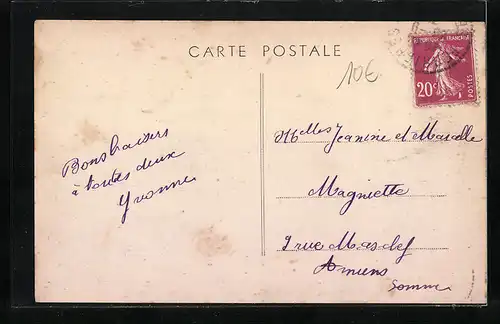 CARTE POSTALE
10€
REPUBLIQUE FRANÇAISE
20c
POSTES
Bons baisers
à toutes deux
Yvonne
Mlles Jeanine et Marcelle
Magniette
rue
Amiens
Somme